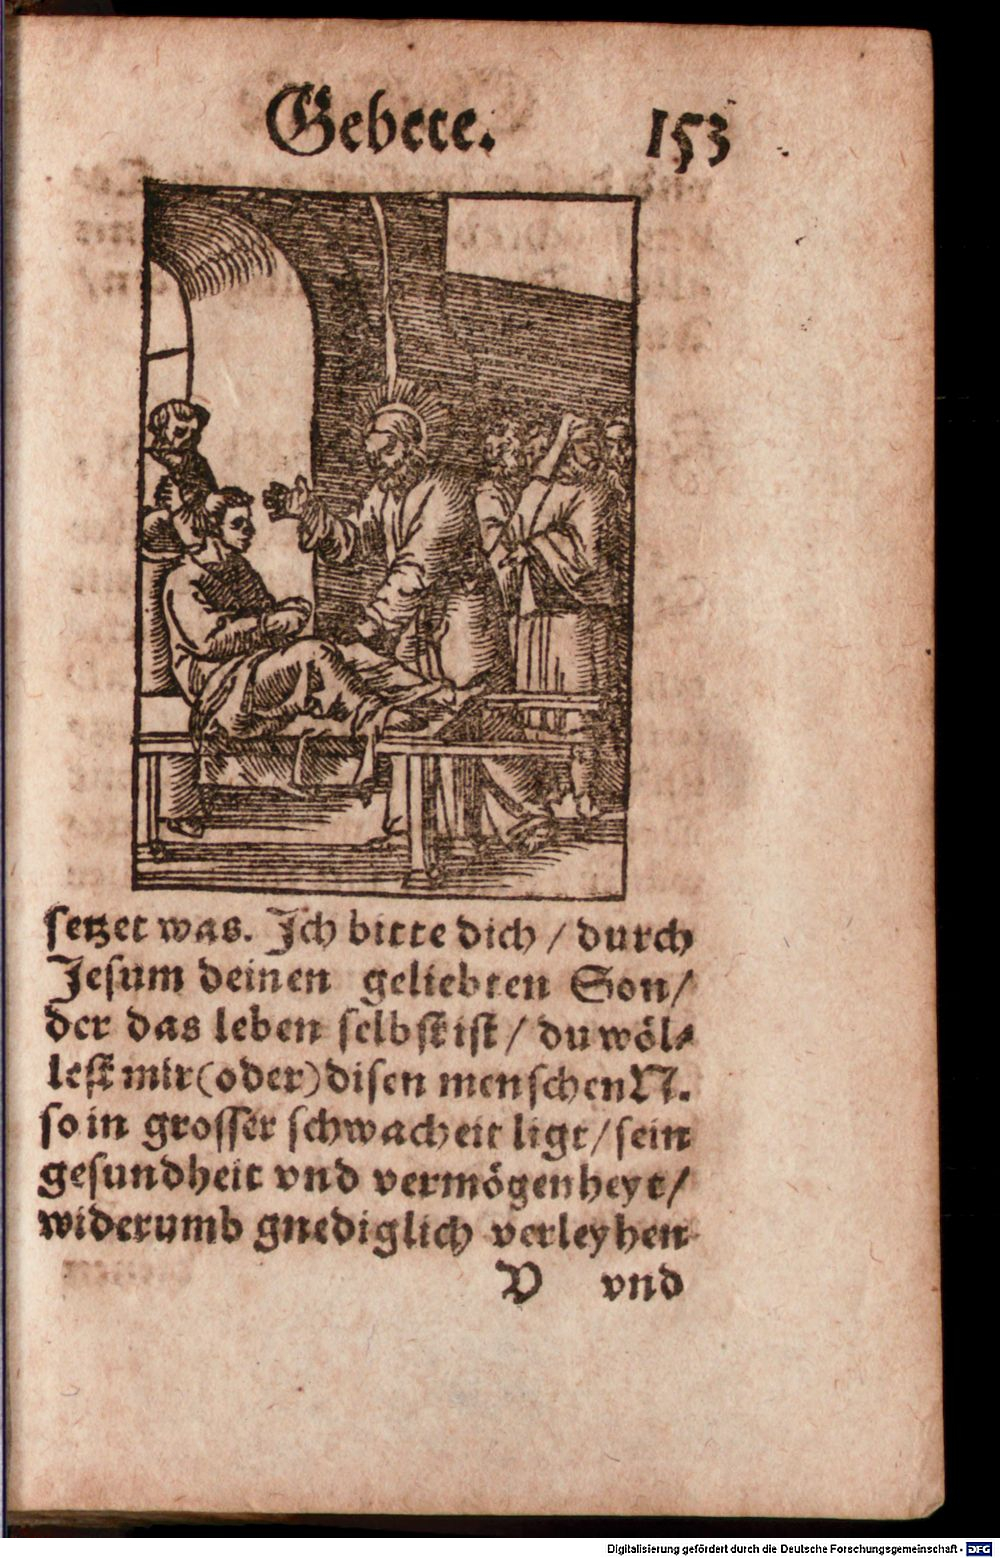 Gebete. 153
setzet was. Ich bitte dich / durch
Jesum deinen geliebten Son /
der das leben selbst ist / du wöl⸗
lest mir (oder) disen menschen N.
so in grosser schwacheit ligt / sein
gesundheit vnd vermögenheyt /
widerumb gnediglich verleyhen
V vnd
Digitalisierung gefördert durch die Deutsche Forschungsgemeinschaft - DFG